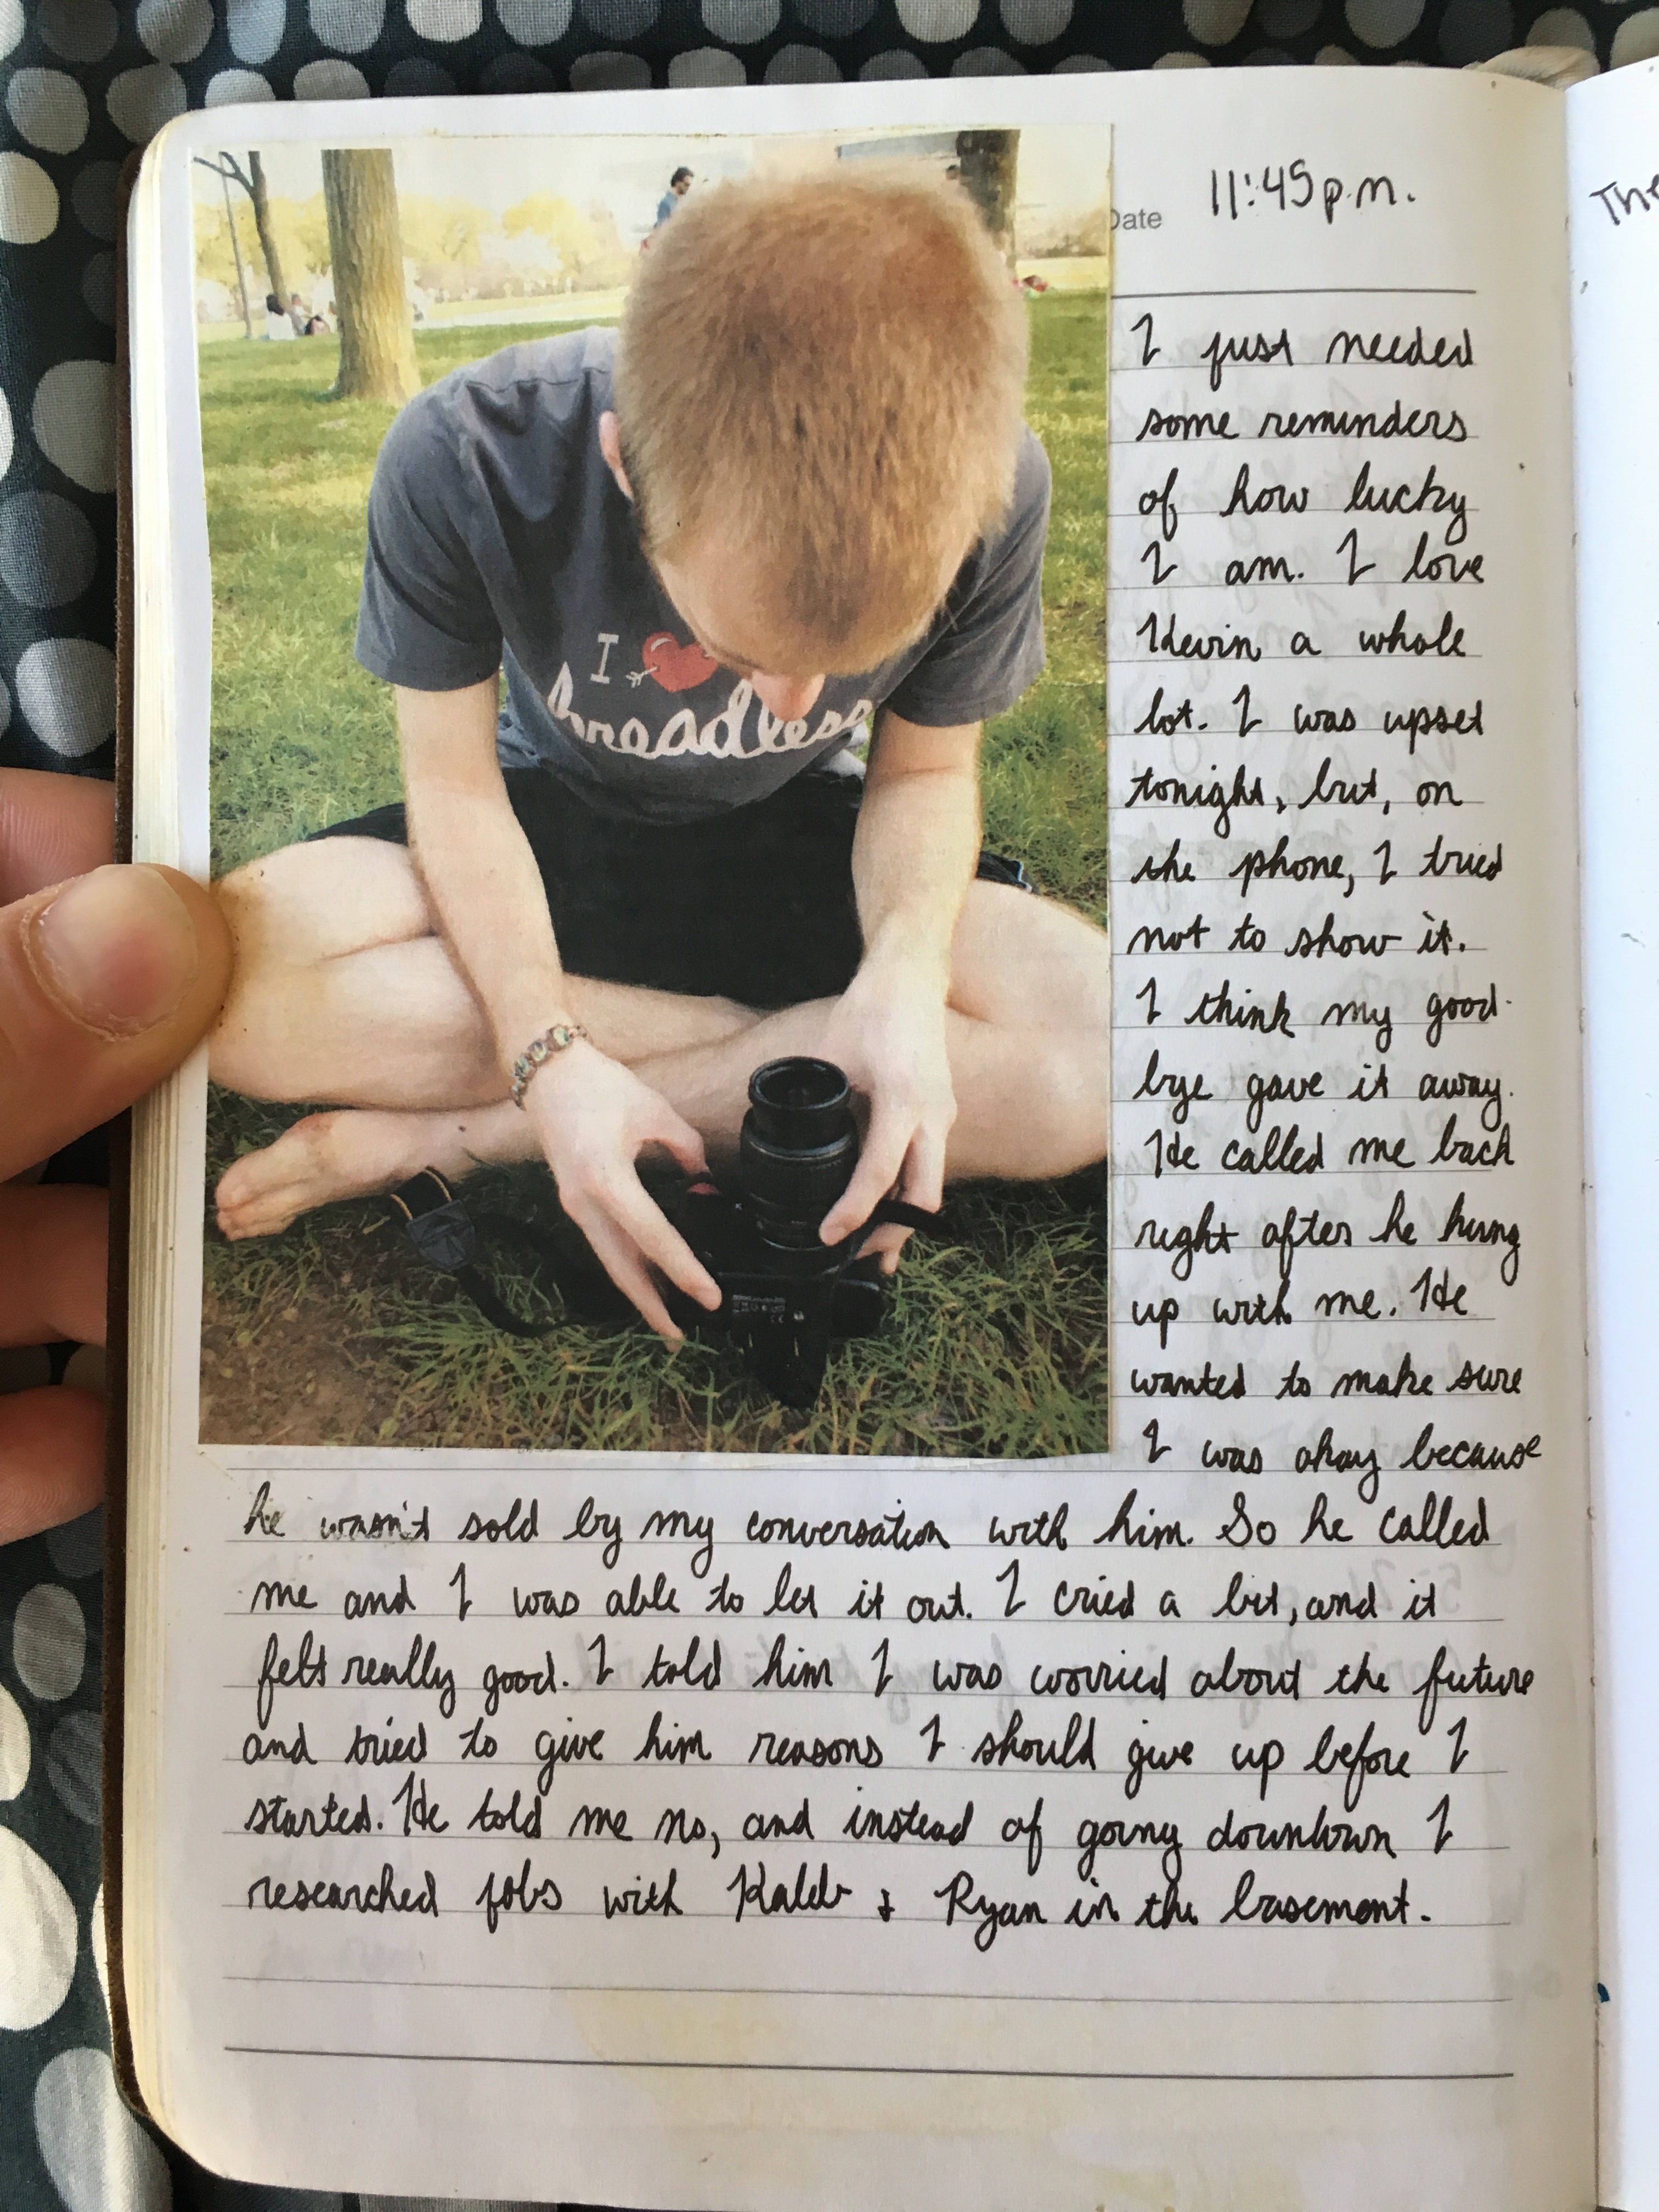 11:45p.m.
Date
The
I just needed
some reminders
of how lucky
I am. I love
Kevin a whole
lot. I was upset
tonight, but, on
the phone, I tried
not to show it.
I think my good-
bye gave it away.
He called me back
right after he hung
up with me. He
wanted to make sure
I was okay because
he wasn't sold by my conversation with him. So he called
me and I was able to let it out. I cried a bit, and it
felt really good. I told him I was worried about the future
and tried to give him reasons I should give up before I
started. He told me no, and instead of going downtown I
researched jobs with Kaleb & Ryan in the basement.
I
threadless